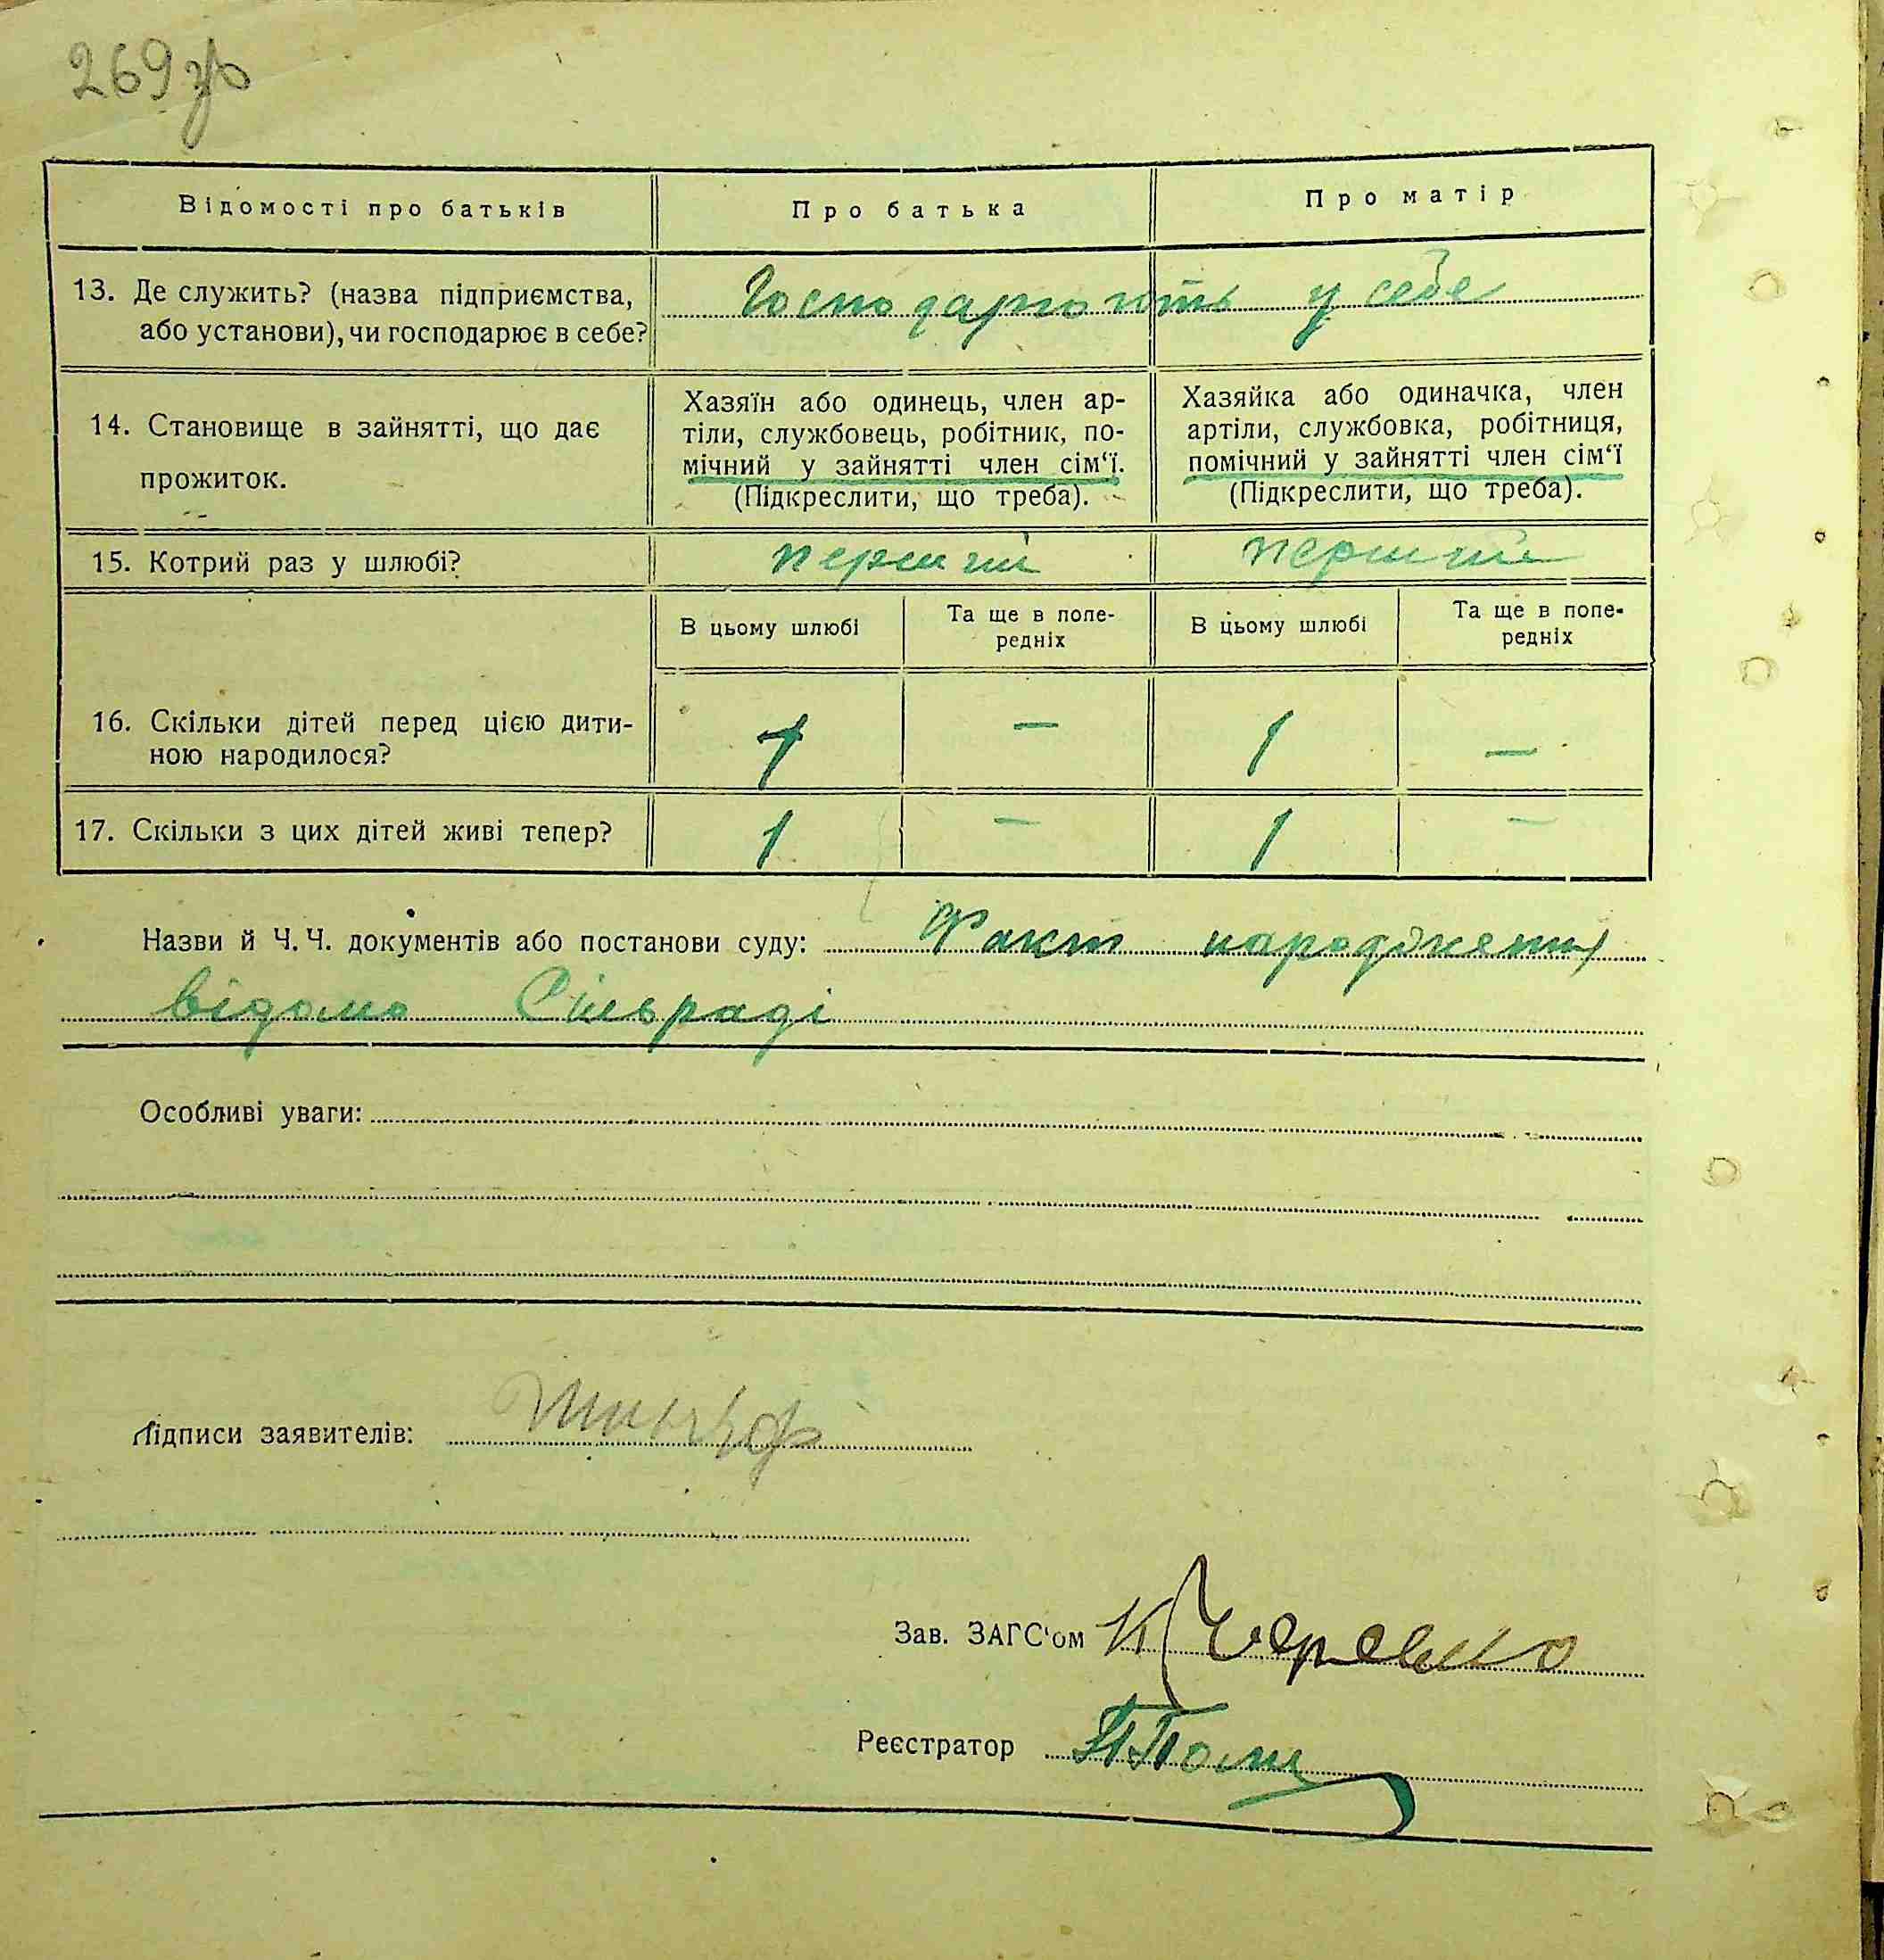 269 зв
Відомості про батьків
Про батька
Про матір
13. Де служить? (назва підприємства,
або установи), чи господарює в себе?
Господарюють у себе
14. Становище в зайнятті, що дає
прожиток.
Хазяїн або одинець, член ар-
тіли, службовець, робітник, по-
мічний у зайнятті член сім‘ї.
(Підкреслити, що треба).
Хазяйка або одиначка, член
артіли, службовка, робітниця,
помічний у зайнятті член сім‘ї
(Підкреслити, що треба).
15. Котрий раз у шлюбі?
перший
перший
В цьому шлюбі
Та ще в попе-
редніх
В цьому шлюбі
Та ще в попе-
редніх
16. Скільки дітей перед цією дити-
ною народилося?
1
—
1
—
17. Скільки з цих дітей живі тепер?
1
—
1
—
Назви й Ч. Ч. документів або постанови суду: Факт народження
відомо Сільраді
Особливі уваги:
Підписи заявителів:
Зав. ЗАГС‘ом
Реєстратор